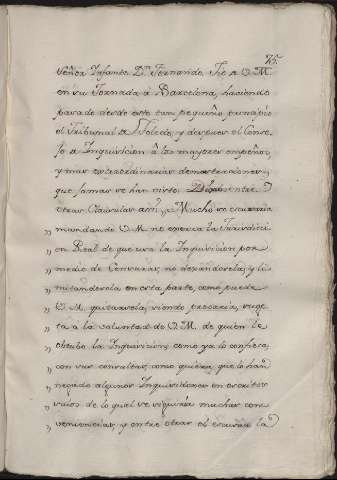 75.
Señor Infante Dn. Fernando, fue a V. M.
en su Jornada à Barcelona, haciendo
pasado desde este tan pequeño principio
el Tribunal de Toledo, y despues el Conse-
jo de Inquisicion à los mayores empeños,
y mas extraordinarias demostraciones,
que jamas se han visto. Debaxo entre
otras Clausulas assi: „Mucho se escusaria
„ mandando V. M. se exerza la Jurisdicci-
„ on Real de que usa la Inquisicion por
„ medio de Censuras, no dexandosela, y li-
„ mitandosela en esta parte, como puede
„ V. M. quitarsela, siendo precaria, suge-
„ ta a la voluntad de V. M. de quien la
„ obtubo la Inquisicion, como ya lo confiesa,
„ con sus consultas, como quiera, que lo han
„ negado algunos Inquisidores en escritos
„ suios de lo qual se siguiria muchas con-
„ veniencias, y entre otras el escusar la